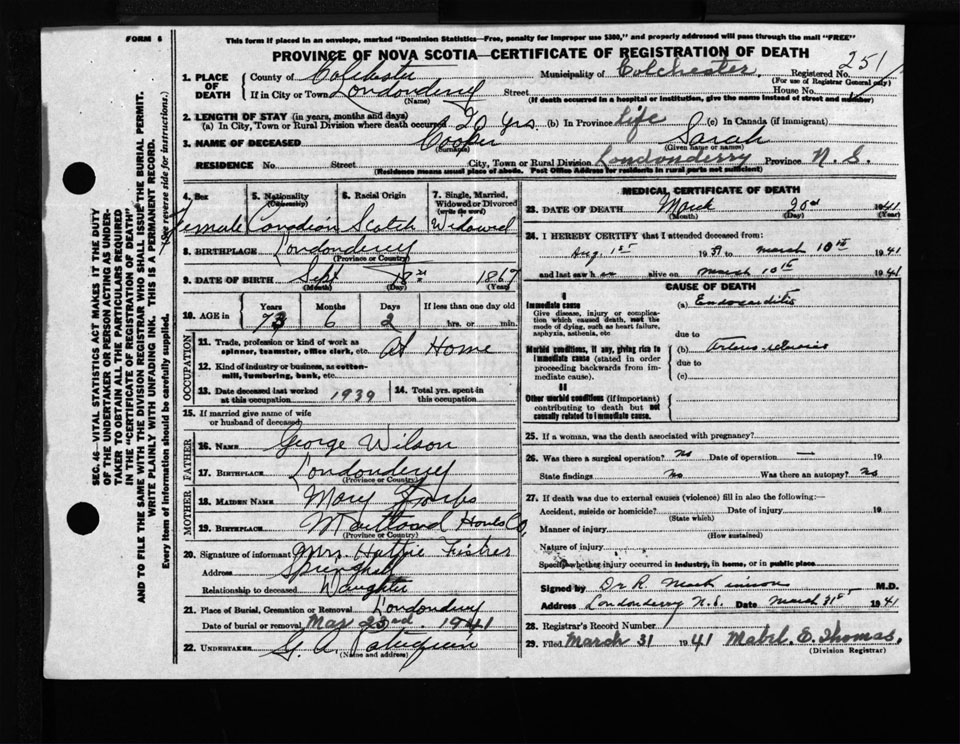 FORM 6
This form if placed in an envelope, marked "Dominion Statistics—Free, penalty for improper use $300," and properly addressed will pass through the mail "FREE"
PROVINCE OF NOVA SCOTIA—CERTIFICATE OF REGISTRATION OF DEATH
SEC. 46—VITAL STATISTICS ACT MAKES IT THE DUTY
OF THE UNDERTAKER OR PERSON ACTING AS UNDER-
TAKER TO OBTAIN ALL THE PARTICULARS REQUIRED
IN THE "CERTIFICATE OF REGISTRATION OF DEATH"
AND TO FILE THE SAME WITH THE DIVISION REGISTRAR WHO SHALL ISSUE THE BURIAL PERMIT.
WRITE PLAINLY WITH UNFADING INK. THIS IS A PERMANENT RECORD.
Every item of information should be carefully supplied. (See reverse side for instructions.)
1. PLACE OF DEATH
County of Colchester Municipality of Colchester. Registered No. 251
(For use of Registrar General only)
If in City or Town Londonderry Street House No.
(Name) (If death occurred in a hospital or institution, give the name instead of street and number)
2. LENGTH OF STAY (in years, months and days)
(a) In City, Town or Rural Division where death occurred 20 yrs. (b) In Province life (c) In Canada (if immigrant)
3. NAME OF DECEASED Cooper Sarah
(Surname) (Given name or names)
RESIDENCE No. Street City, Town or Rural Division Londonderry Province N. S.
(Residence means usual place of abode. Post Office Address for residents in rural parts not sufficient)
4. Sex 5. Nationality (Citizenship) 6. Racial Origin 7. Single, Married, Widowed or Divorced (write the word)
Female Canadian Scotch Widowed
8. BIRTHPLACE Londonderry
(Province or Country)
9. DATE OF BIRTH Sept 18 1867
(Month) (Day) (Year)
10. AGE in Years Months Days If less than one day old
73 6 2 hrs. or min.
OCCUPATION
11. Trade, profession or kind of work as spinner, teamster, office clerk, etc. At Home
12. Kind of industry or business, as cotton-mill, lumbering, bank, etc.
13. Date deceased last worked at this occupation 1939 14. Total yrs. spent in this occupation
15. If married give name of wife or husband of deceased
FATHER
16. NAME George Wilson
17. BIRTHPLACE Londonderry
(Province or Country)
MOTHER
18. MAIDEN NAME Mary
19. BIRTHPLACE Maitland Hants Co,
(Province or Country)
20. Signature of informant Mrs. Hattie Fisher
Address Springhill
Relationship to deceased Daughter
21. Place of Burial, Cremation or Removal Londonderry
Date of burial or removal Mar 23rd. 1941
22. UNDERTAKER G. A. Patriquin
(Name and address)
MEDICAL CERTIFICATE OF DEATH
23. DATE OF DEATH March 20 1941
(Month) (Day) (Year)
24. I HEREBY CERTIFY that I attended deceased from:
Aug. 1st 1939 to March 10th 1941
and last saw h er alive on March 10th 1941
CAUSE OF DEATH
I
Immediate cause (a) Endocarditis
Give disease, injury, or complication which caused death, not the mode of dying, such as heart failure, asphyxia, asthenia, etc.
due to
Morbid conditions, if any, giving rise to immediate cause (stated in order proceeding backwards from immediate cause). (b)
due to
(c)
II
Other morbid conditions (if important) contributing to death but not causally related to immediate cause.
25. If a woman, was the death associated with pregnancy?
26. Was there a surgical operation? No Date of operation — 19
State findings No Was there an autopsy? No
27. If death was due to external causes (violence) fill in also the following:—
Accident, suicide or homicide? Date of injury 19
(State which)
Manner of injury
(How sustained)
Nature of injury
Specify whether injury occurred in industry, in home, or in public place
Signed by Dr R. M.D.
Address Londonderry N.S. Date March 31st 1941
28. Registrar's Record Number
29. Filed March 31 1941 Mabel. E. Thomas.
(Division Registrar)